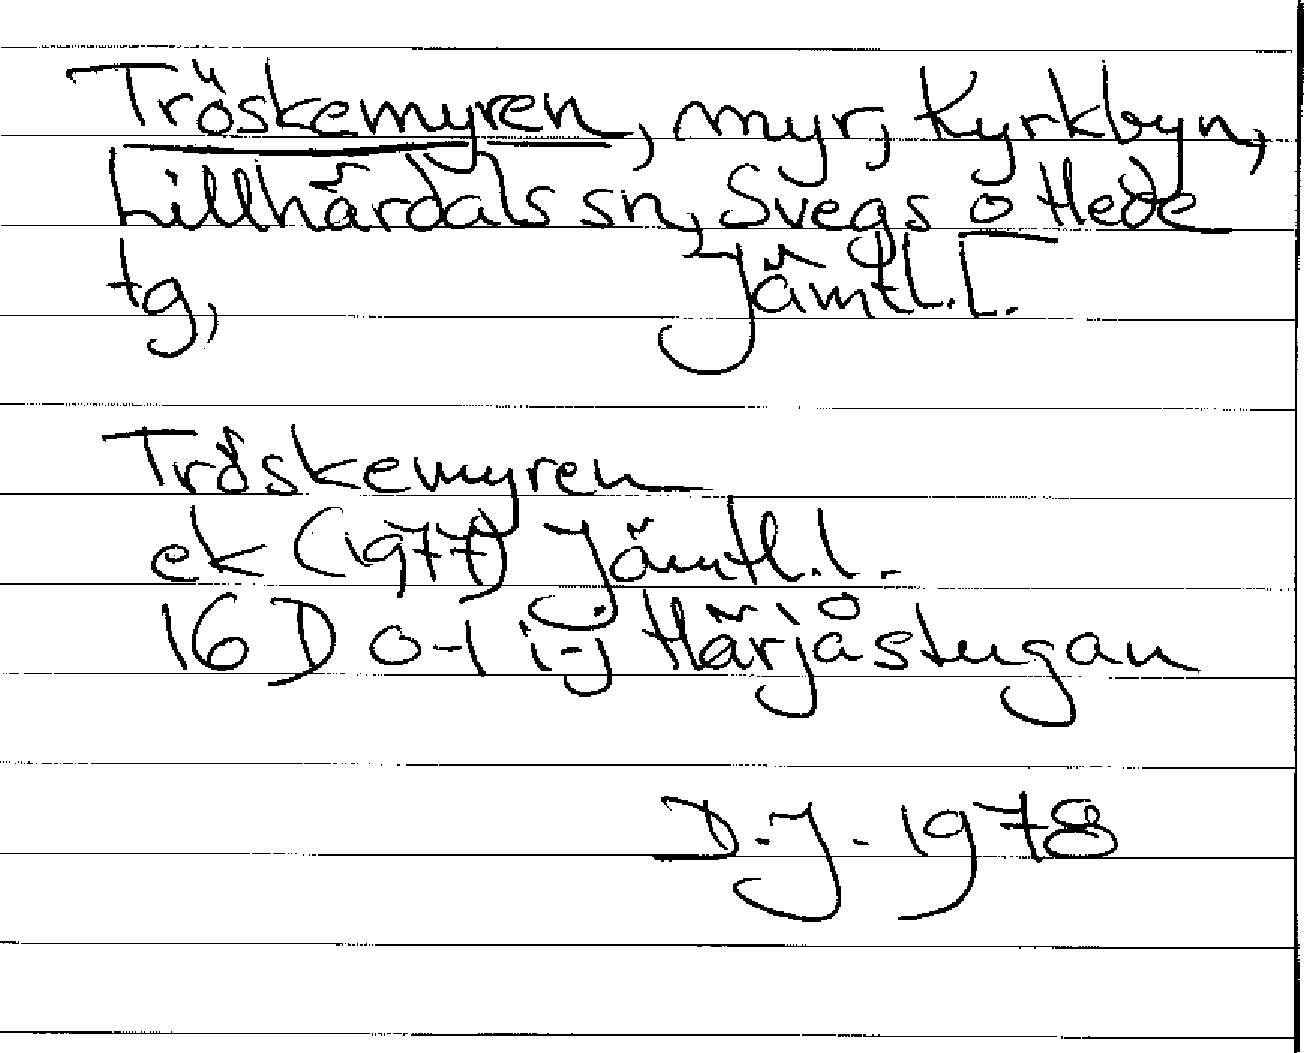 Tröskemyren, myr, Kyrkbyn,
Lillhärdals sn, Svegs o Hede
tg, Jämtl. l.
Tröskemyren
ek (1977) Jämtl. l.
16 D o-1 i-j Härjåstugan
D.J. 1978